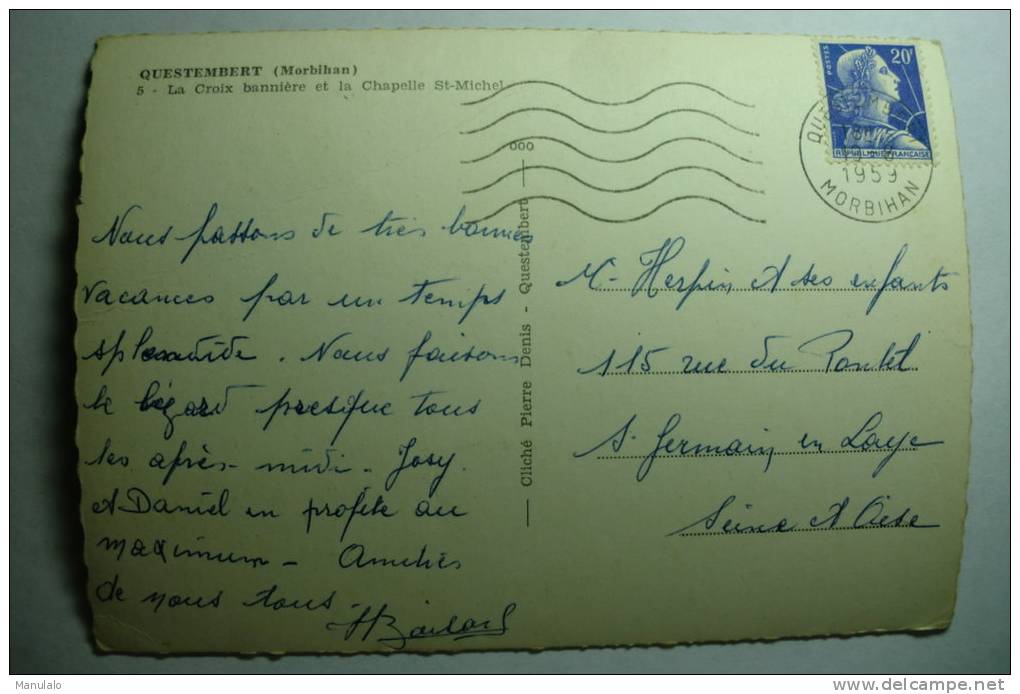 QUESTEMBERT (Morbihan)
5 - La Croix bannière et la Chapelle St-Michel
20F
POSTES
REPUBLIQUE FRANÇAISE
1959
MORBIHAN
Nous passons de très bonnes
vacances par un temps
splendide. Nous faisons
le lézard presque tous
les après-midi - Josy
et Daniel en profite au
maximum - Amitiés
de nous tous
ooo
— Cliché Pierre Denis - Questembert —
M- Herpin et ses enfants
115 rue du Pontel
St Germain en Laye
Seine et Oise
Manulalo
delcampe.net